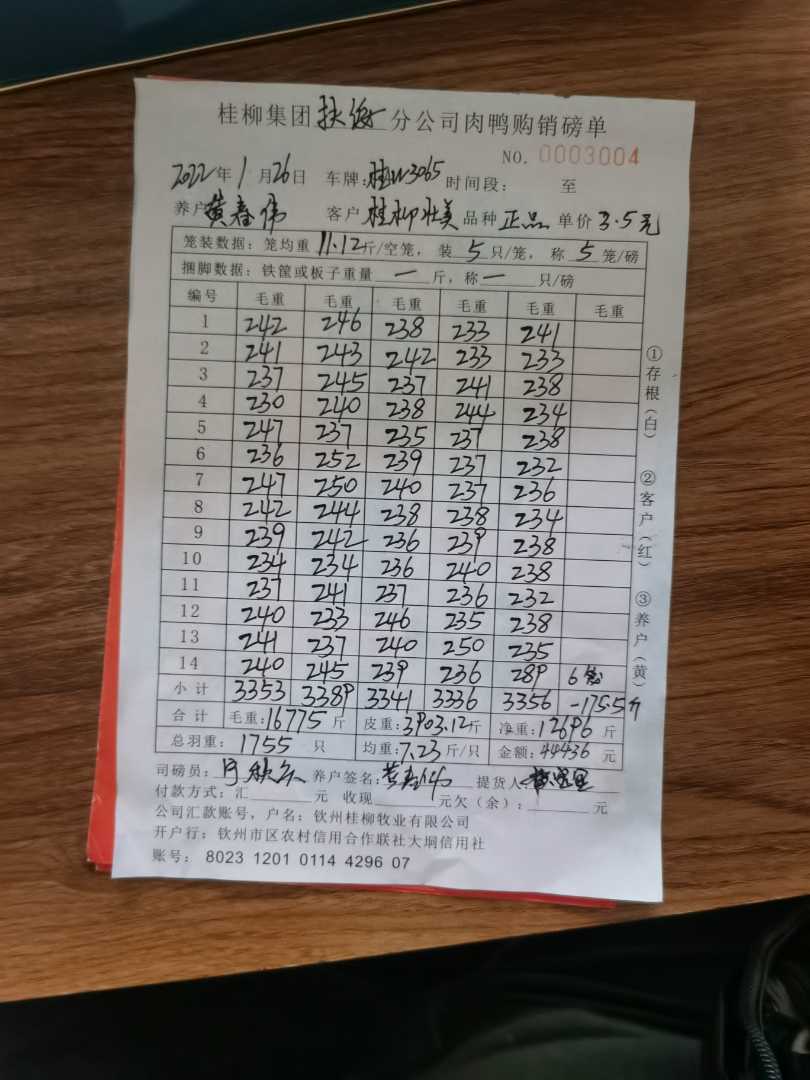 桂柳集团扶绥分公司肉鸭购销磅单
NO. 0003004
2022年1月26日 车牌:桂W3065 时间段: 至
养户黄春伟 客户桂柳壮美 品种正品 单价3.5元
笼装数据: 笼均重11.12斤/空笼, 装5只/笼, 称5笼/磅
捆脚数据: 铁筐或板子重量一斤, 称一只/磅
编号 毛重 毛重 毛重 毛重 毛重 毛重
1 242 246 238 233 241
2 241 243 242 233 233
3 237 245 237 241 238
4 230 240 238 244 234
5 247 237 235 237 238
6 236 252 239 237 232
7 247 250 240 237 236
8 242 244 238 238 234
9 239 242 236 239 238
10 234 234 236 240 238
11 237 241 237 236 232
12 240 233 246 235 238
13 241 237 240 250 235
14 240 245 239 236 289 6笼
小计 3353 3389 3341 3336 3356 -175.5斤
合计 毛重:16775斤 皮重:3903.12斤 净重:12696斤
总羽重: 1755 只 均重:7.23斤/只 金额:44436元
司磅员: 养户签名:黄春伟 提货人:
付款方式: 汇 元 收现 元欠(余): 元
公司汇款账号, 户名: 钦州桂柳牧业有限公司
开户行: 钦州市区农村信用合作联社大垌信用社
账号: 8023 1201 0114 4296 07
①存根(白) ②客户(红) ③养户(黄)